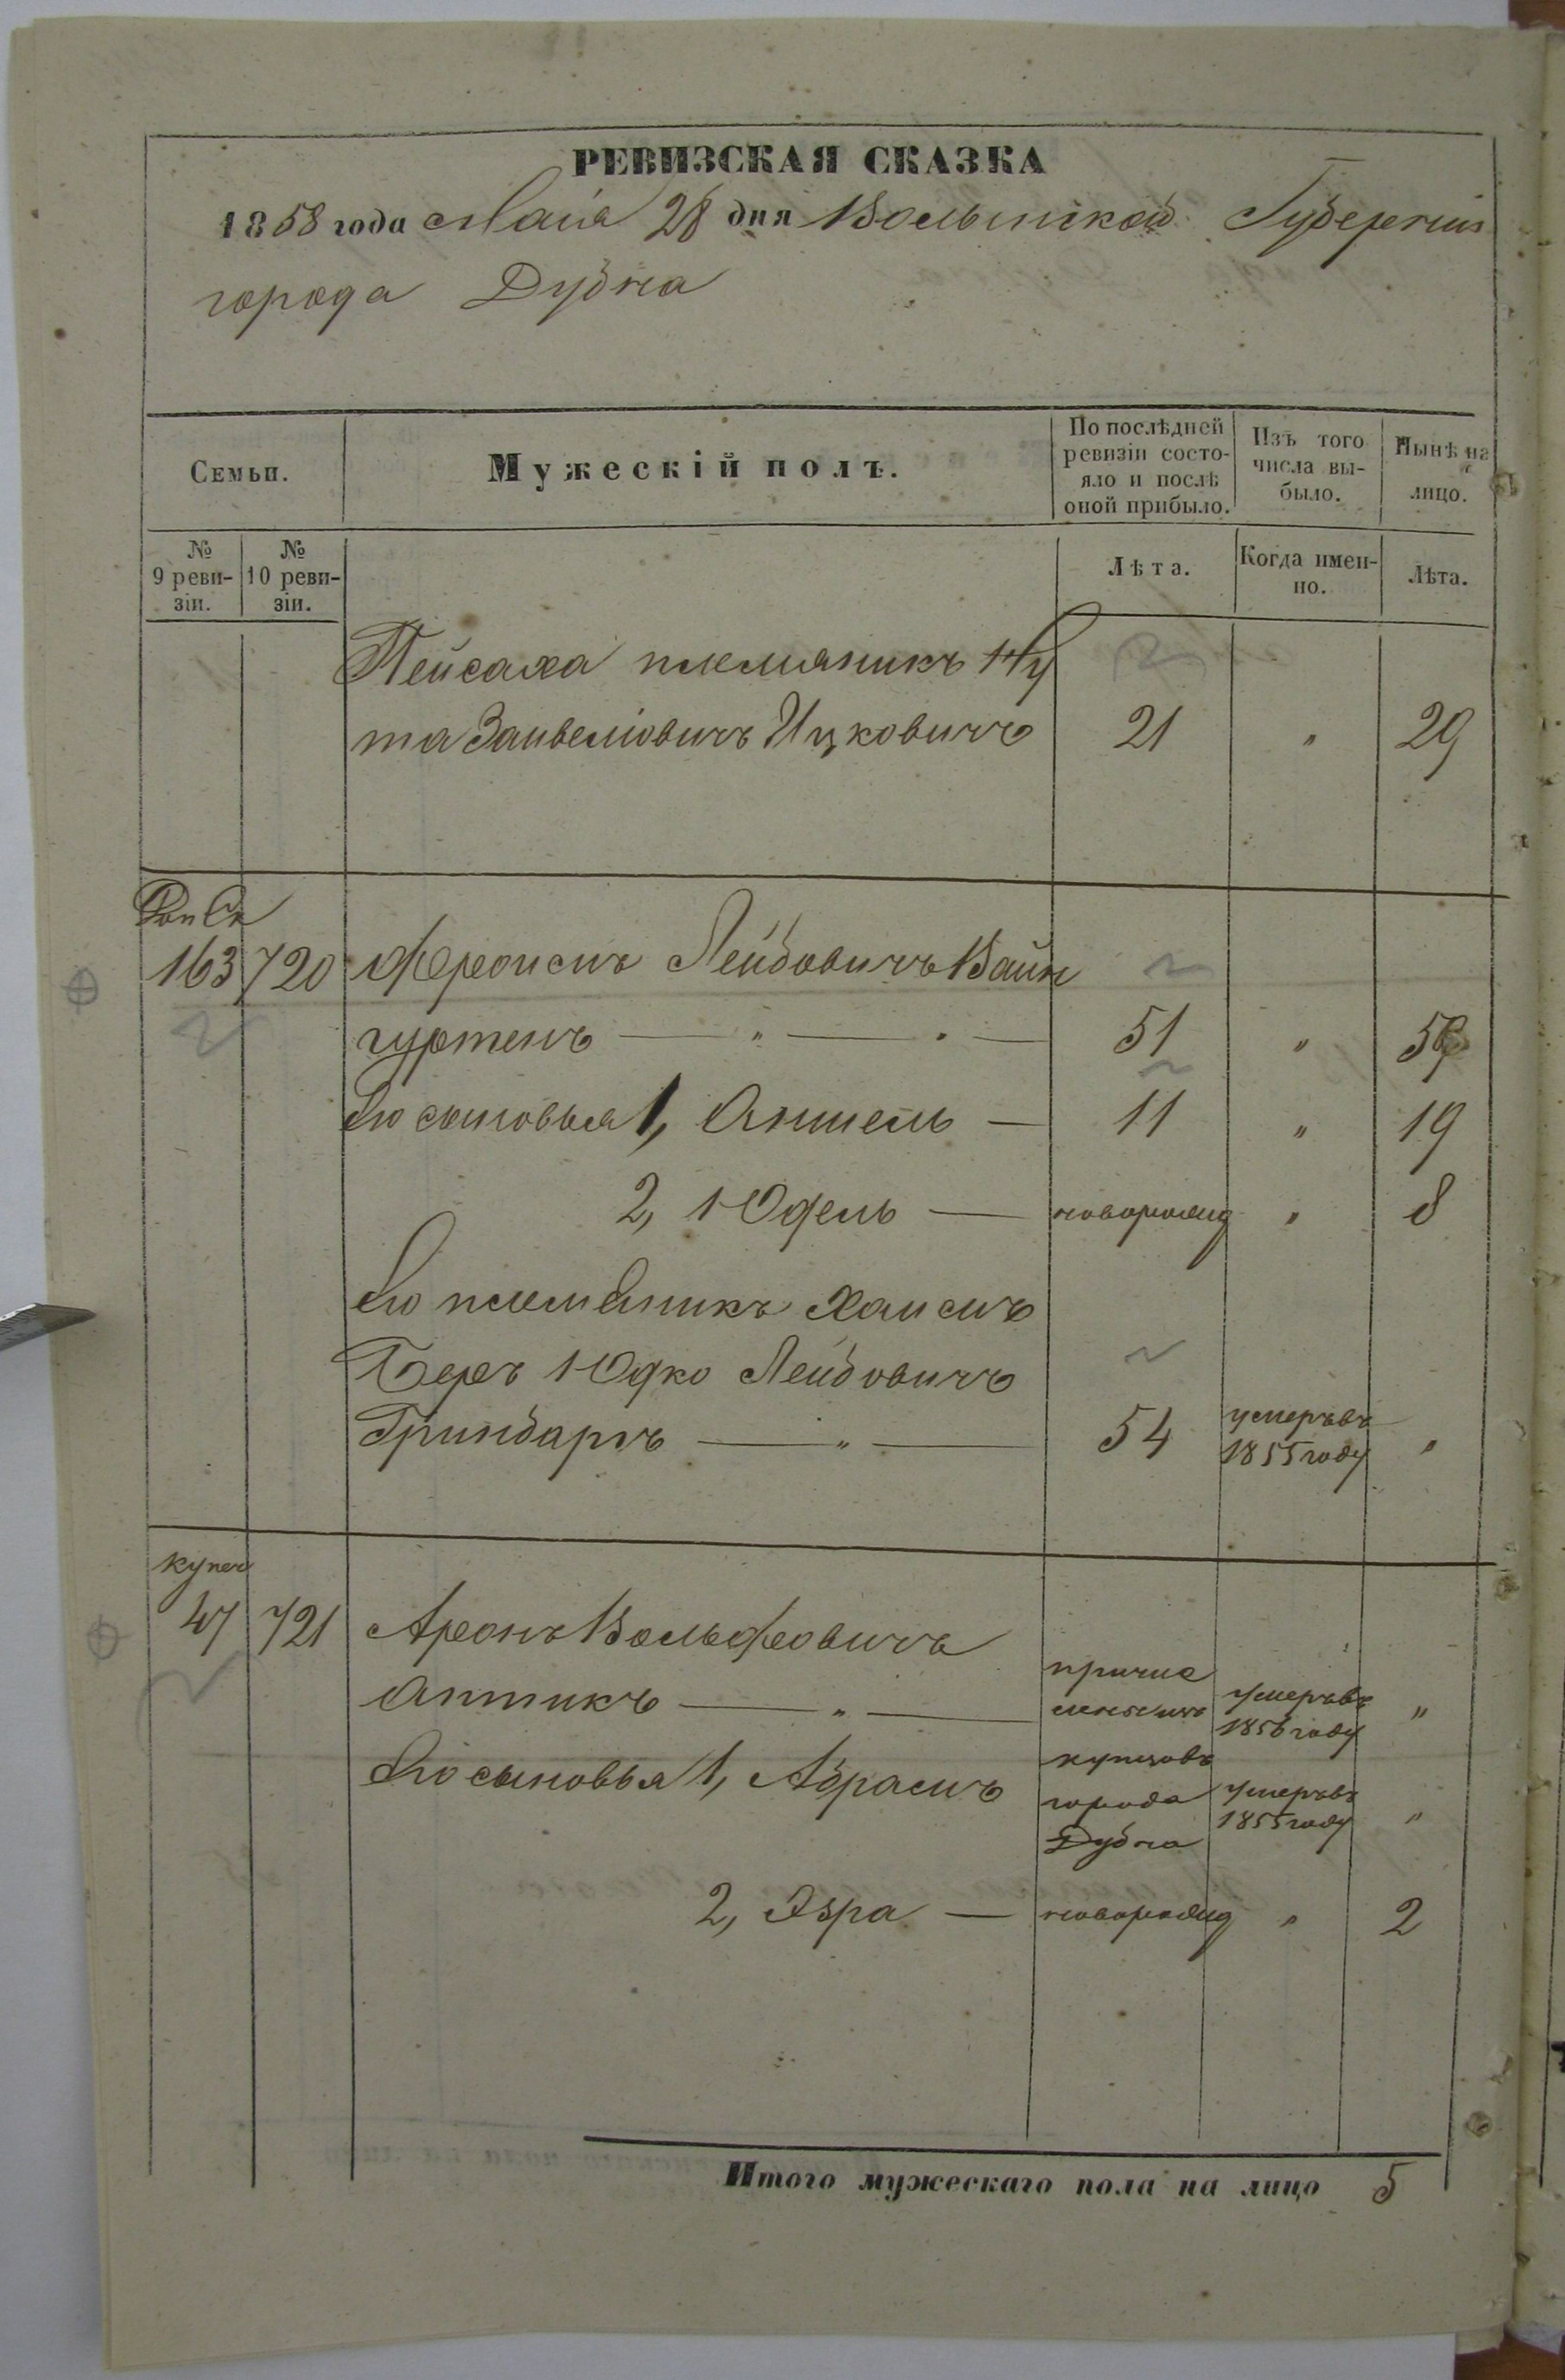 РЕВИЗСКАЯ СКАЗКА
1858 года Маія 28 дня Волынской Губерніи
города Дубна
Семьи.
Мужескій полъ.
По послѣдней ревизіи состо-
яло и послѣ
оной прибыло.
Изъ того
числа вы-
было.
Нынѣ на
лицо.
№
9 реви-
зіи.
№
10 реви-
зіи.
Лѣта.
Когда имен-
но.
Лѣта.
Пейсаха племяникъ Ну
та Занвеліовичъ Ицковичъ 21 " 29
163 720 Фроимъ Лейбовичъ Вайн
гуртенъ — " — 51 " 59
Его сыновья 1, Аншель — 11 " 19
2, Юдель — новорожд " 8
Его племяникъ Хаимъ
Беръ Юдко Лейбовичъ
Гринбаргъ — " — 54 умеръ въ 1855 году "
купеч
47 721 Аронъ Вольфовичъ
Аптикъ — " — причис
леньемъ умеръ въ 1856 году "
Его сыновья 1, Абрамъ купцовъ
города
Дубна умеръ въ 1855 году "
2, Эзра — новорожд " 2
Итого мужескаго пола на лицо 5